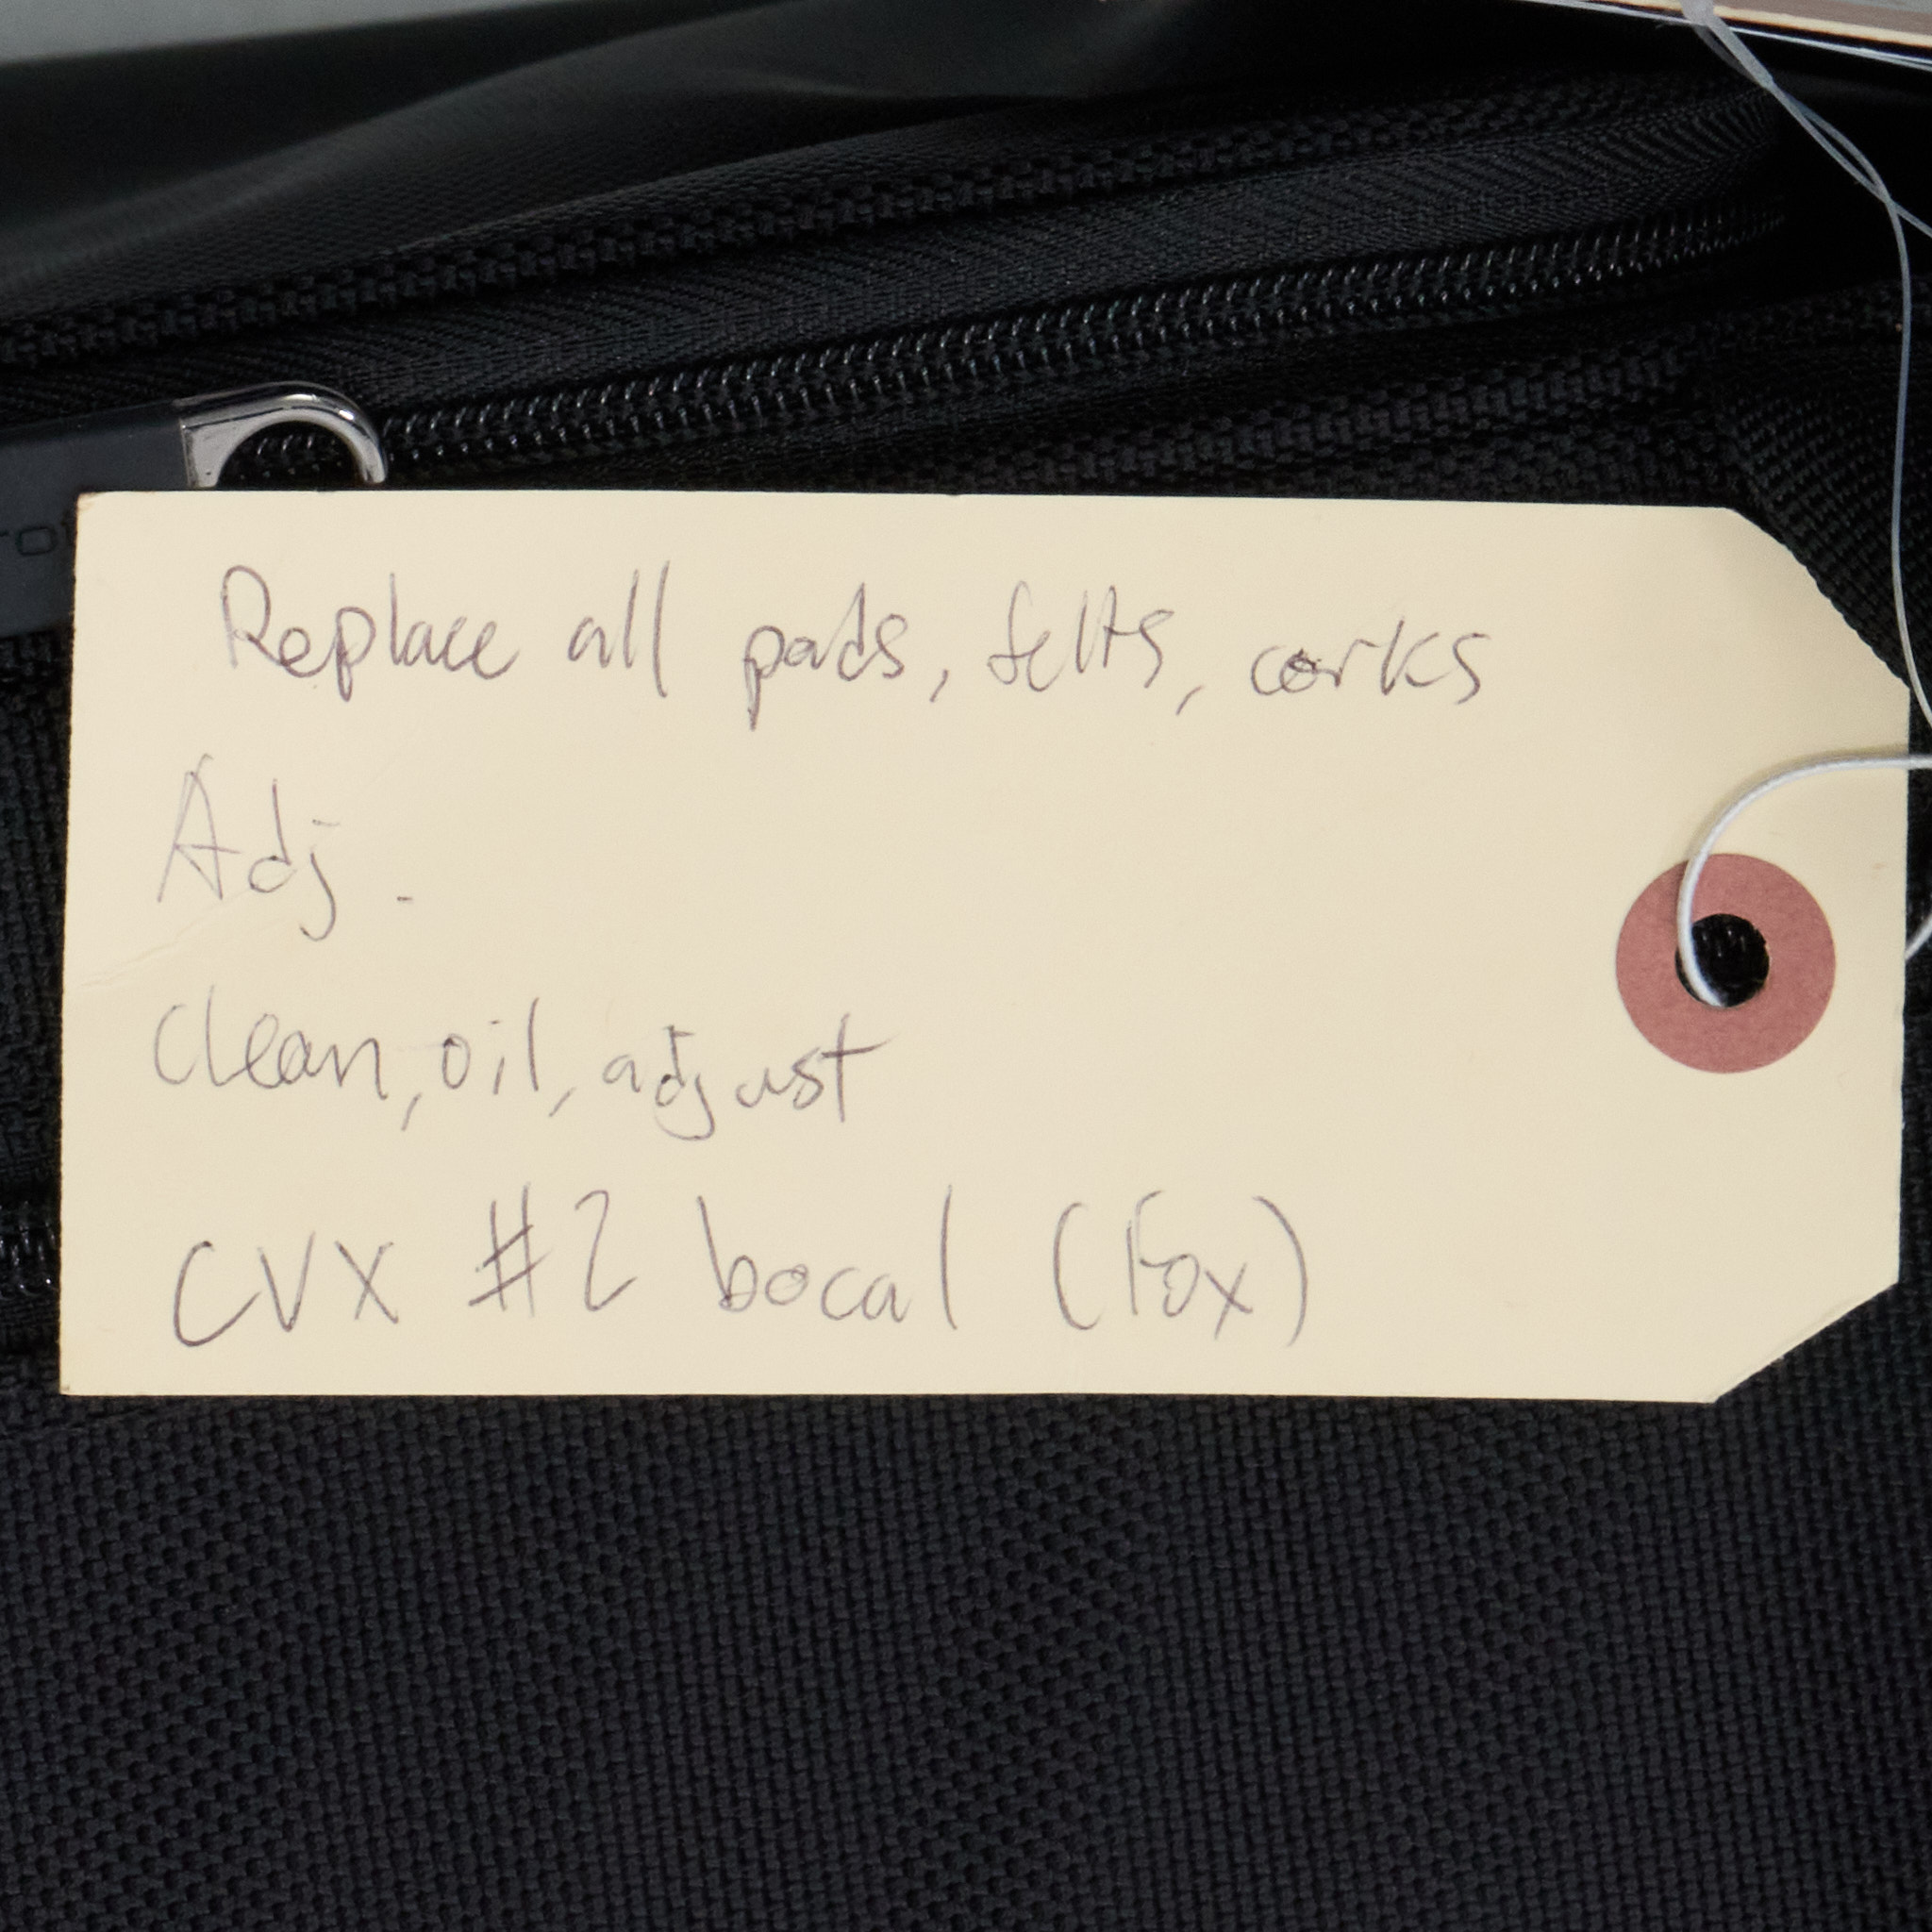 Replace all pads, felts, corks
Adj.
Clean, oil, adjust
CVX #2 bocal (Fox)